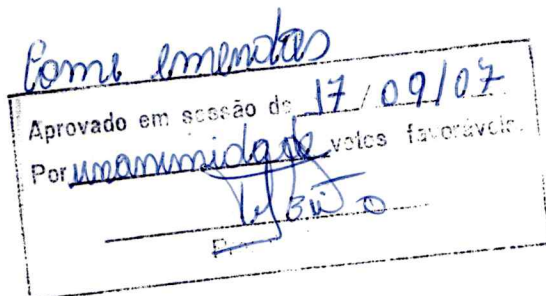 Come emendas
Aprovado em sessão de 17/09/07
Por unanimidade votos favoráveis.